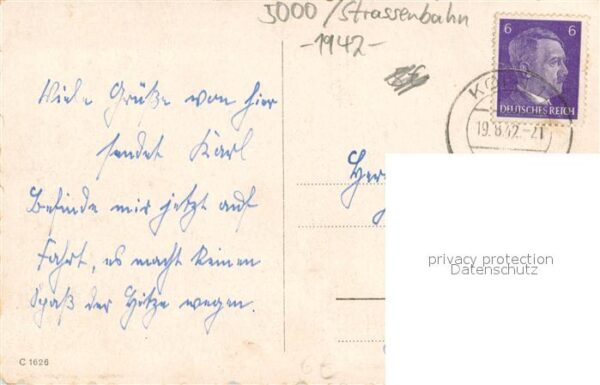 5000/Strassenbahn
-1942-
6 6
DEUTSCHES REICH
19.8.42.-21
Viele Grüße von hier
sendet Karl
Befinde mir jetzt auf
Fahrt, es macht keinen
Spaß der Hitze wegen.
privacy protection
Datenschutz
C 1626